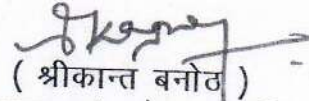 ( श्रीकान्त बनोठ )